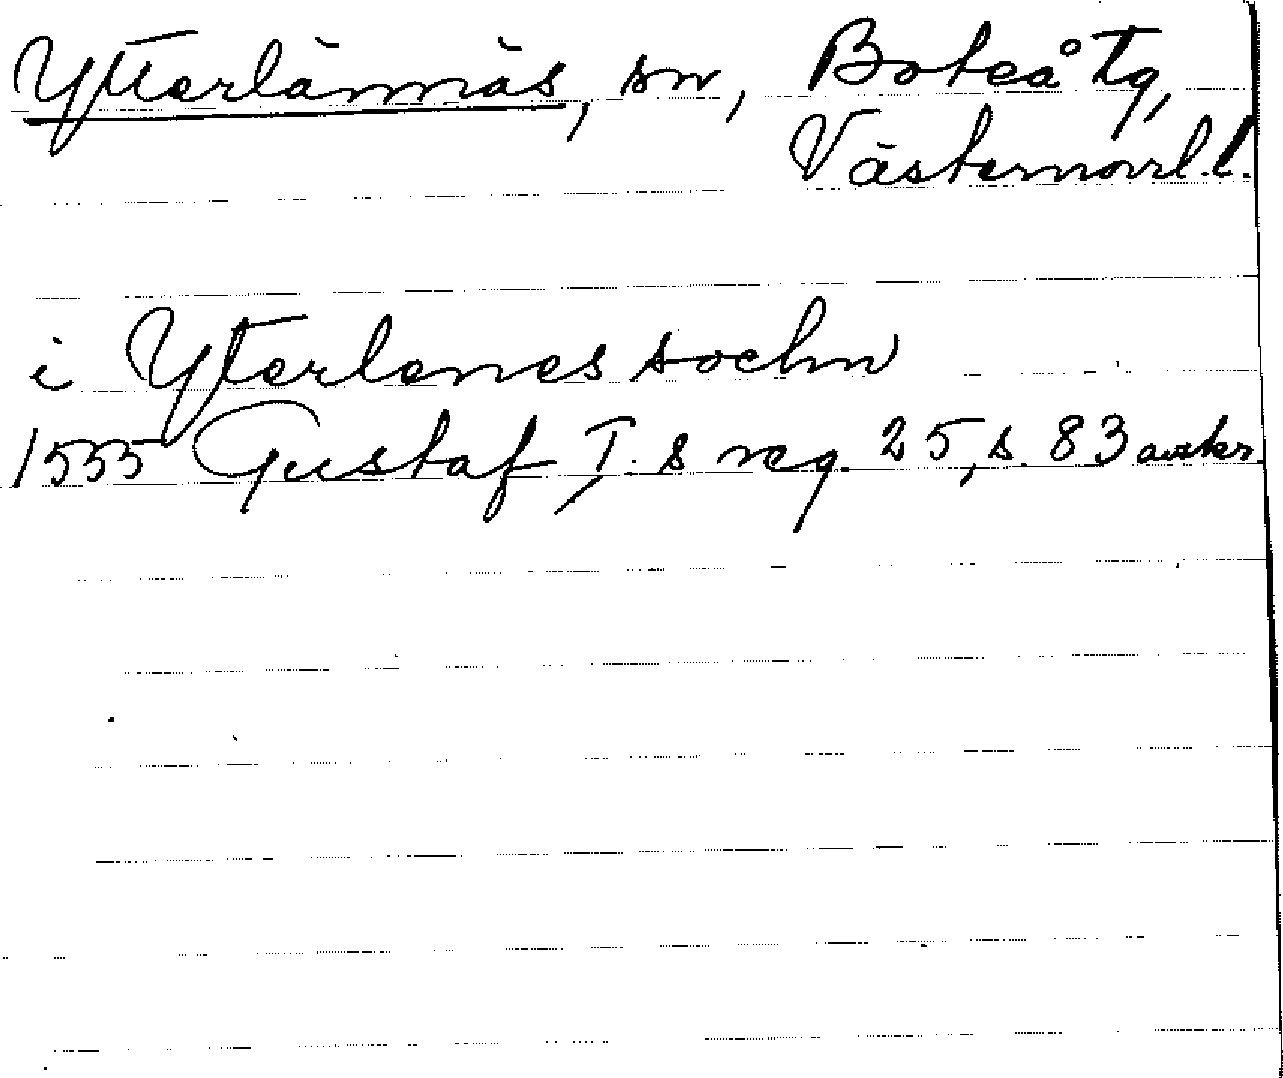 Ytterlännäs, sn, Boteå tg,
Västernorrl. l.
i Yterlenes sochn
1535 Gustaf I. s reg. 25, s. 83 avskr.